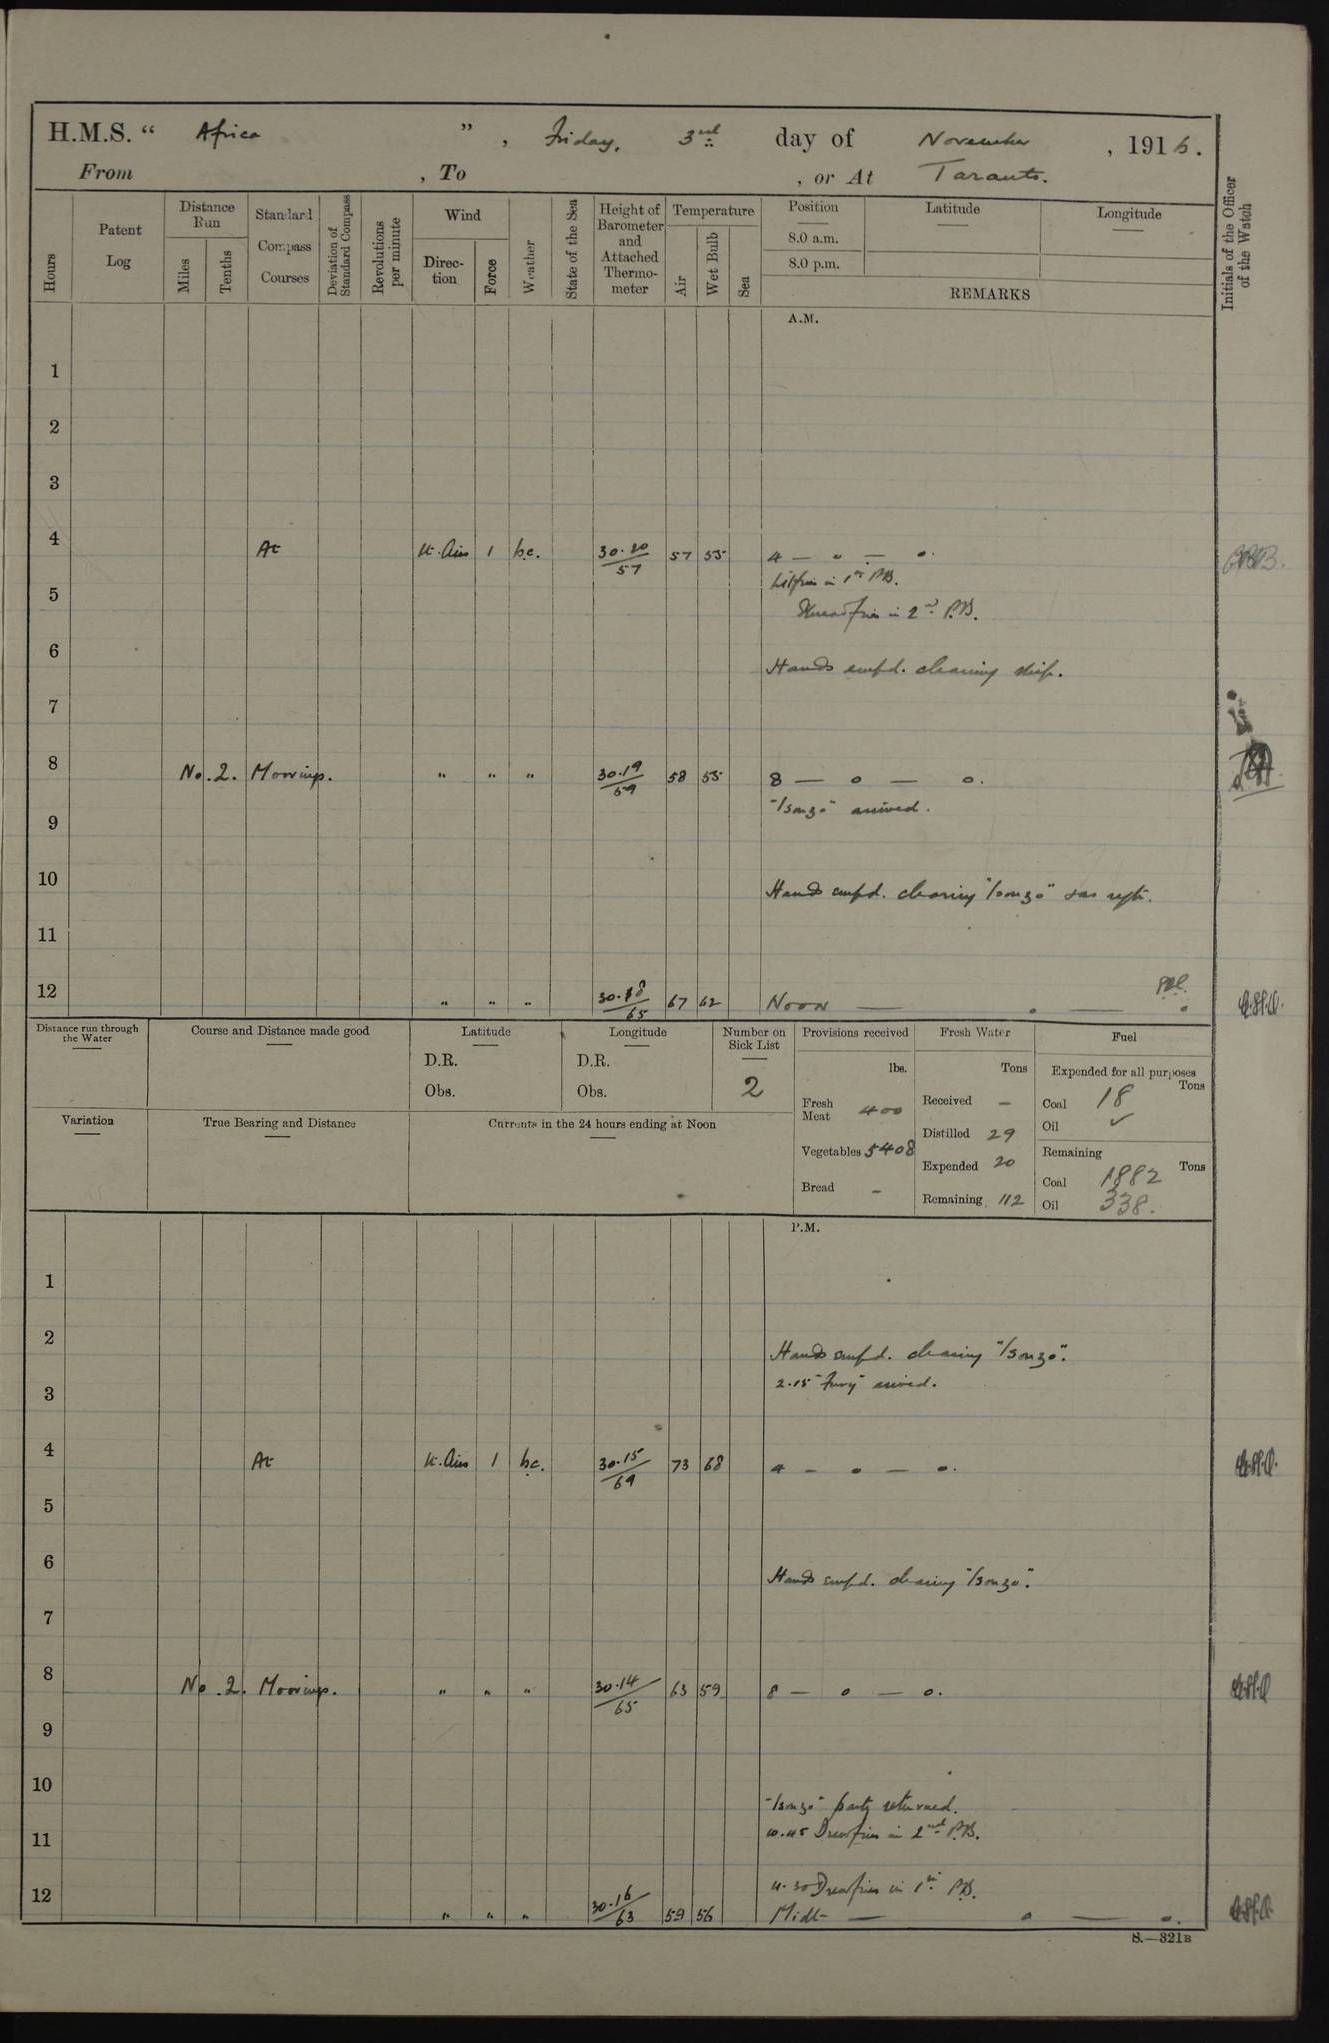 H.M.S. “ Africa ” , Friday, 3rd day of November , 1916.
From , To , or At Taranto.
Hours
Patent Log
Distance Run
Miles
Tenths
Standard Compass Courses
Deviation of Standard Compass
Revolutions per minute
Wind
Direction
Force
Weather
State of the Sea
Height of Barometer and Attached Thermometer
Temperature
Air
Wet Bulb
Sea
Position
8.0 a.m.
8.0 p.m.
Latitude
Longitude
REMARKS
Initials of the Officer of the Watch
A.M.
1
2
3
4 At Lt. Airs 1 b.c. 30.20/57 57 55 4 — " — "
Lit fires in 1st P.B.
5
in 2nd P.B.
6
Hands empd. cleaning ship.
7
8 No. 2. Moorings. " " " 30.19/59 58 55 8 — o — o.
"Isonzo" arrived.
9
10 Hands empd. clearing "Isonzo"
11
12 " " " 30.18/65 67 62 Noon — . — .
Distance run through the Water
Course and Distance made good
Latitude
D.R.
Obs.
Longitude
D.R.
Obs.
Number on Sick List
2
Provisions received
lbs.
Fresh Meat 400
Vegetables 5408
Bread -
Fresh Water
Tons
Received –
Distilled 29
Expended 20
Remaining 112
Fuel
Expended for all purposes
Tons
Coal 18
Oil ✓
Remaining
Tons
Coal 1882
Oil 338.
Variation
True Bearing and Distance
Currents in the 24 hours ending at Noon
P.M.
1
2
Hands empd. clearing "Isonzo".
2.15 "Fury" arrived.
3
4 At Lt. Airs 1 b.c. 30.15/69 73 68 4 – o – o.
5
6
Hands empd. clearing "Isonzo".
7
8 No. 2. Moorings. " " " 30.14/65 63 59 8 – o – o.
9
10
"Isonzo" party returned.
10.45 Drew fires in 2nd P.B.
11
11.30 Drew fires in 1st P.B.
12 " " " 30.16/63 59 56 Midt — o — o.
S.—321B